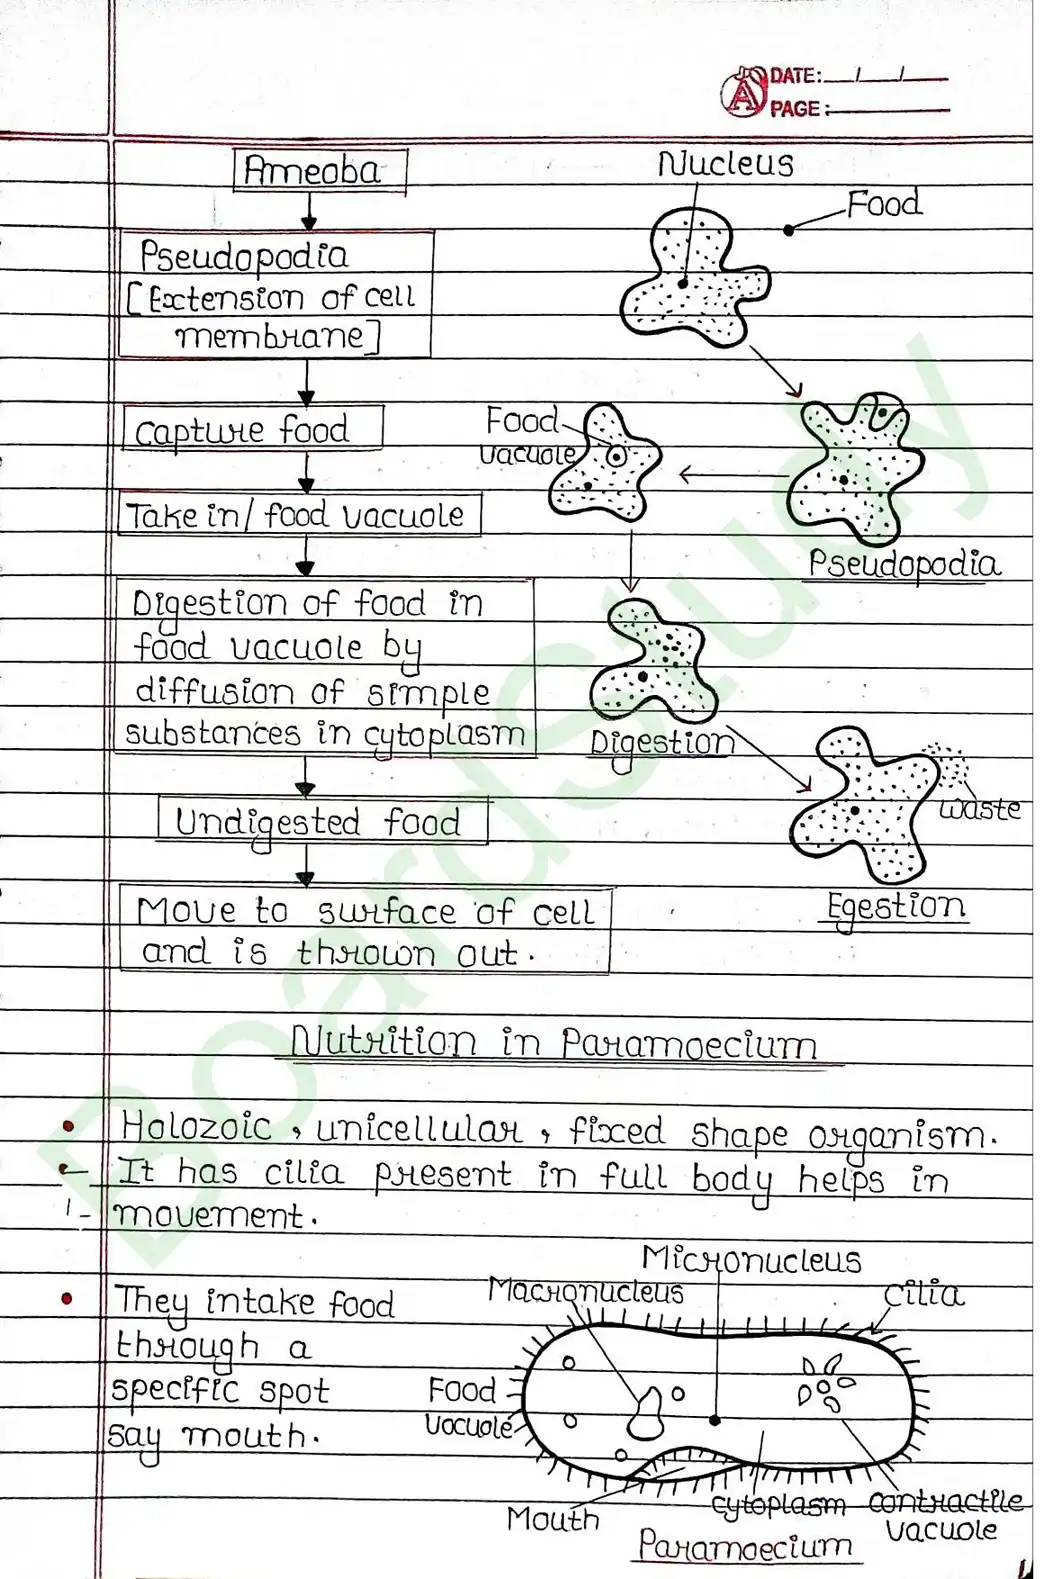 DATE: / /
PAGE:
Ameoba
Pseudopodia
[Extension of cell
membrane]
capture food
Take in/ food vacuole
Digestion of food in
food vacuole by
diffusion of simple
substances in cytoplasm
Undigested food
Move to surface of cell
and is thrown out.
Nucleus
Food
Food
vacuole
Pseudopodia
Digestion
waste
Egestion
Nutrition in Paramoecium
• Holozoic, unicellular, fixed shape organism.
• It has cilia present in full body helps in
movement.
• They intake food
through a
specific spot
say mouth.
Micronucleus
Macronucleus
cilia
Food
Vacuole
Mouth
cytoplasm
contractile
vacuole
Paramoecium
BoardStudy